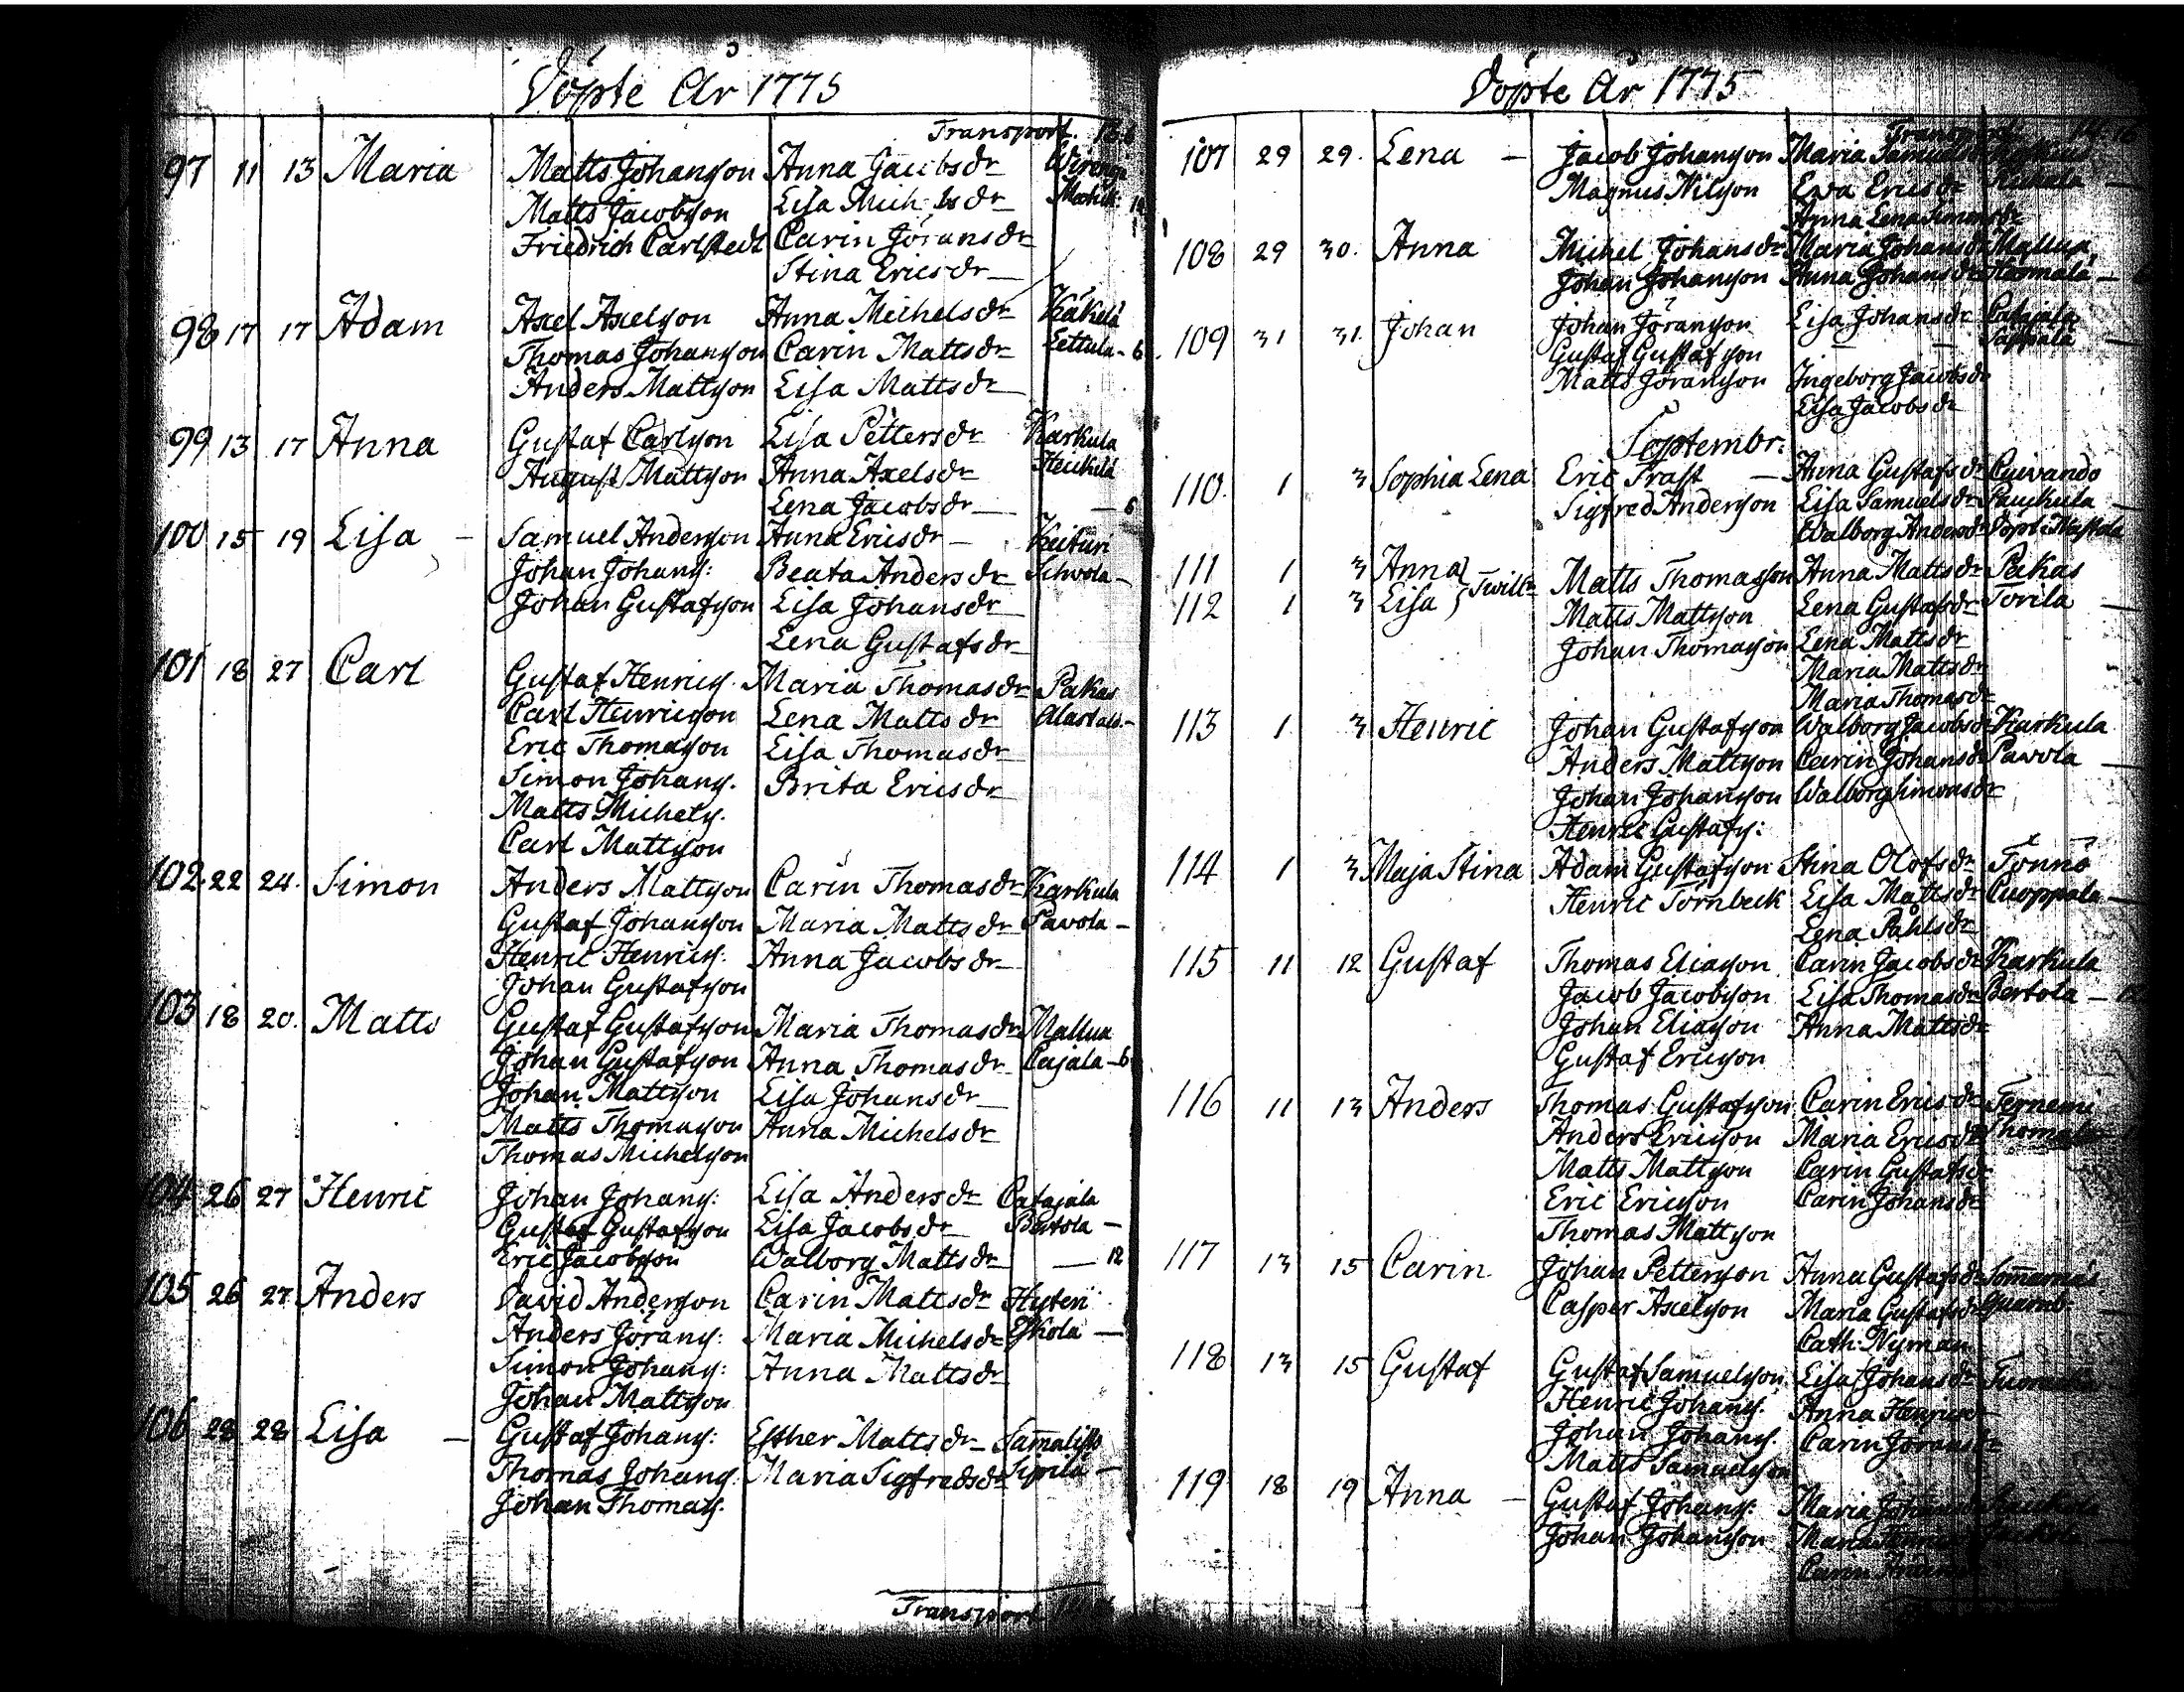 Döpte År 1775
Transport.
97 11 13 Maria Matts Johansson Anna Jacobsdr
Matts Jacobsson Lisa Mich:lsdr
Friedrich Carlstedt Carin Jöransdr
Stina Ericsdr
98 17 17 Adam Axel Axelsson Anna Michelsdr Käkelä
Thomas Johansson Carin Mattsdr Lettula - 6
Anders Mattsson Lisa Mattsdr
99 13 17 Anna Gustaf Carlsson Lisa Pettersdr Karkula
August Mattsson Anna Axelsdr Heikilä
Lena Jacobsdr — 6
100 15 19 Lisa Samuel Andersson Anna Ericsdr Keituri
Johan Johans: Beata Andersdr
Johan Gustafsson Lisa Johansdr
Lena Gustafsdr
101 18 27 Carl Gustaf Henrics. Maria Thomasdr Pakas
Carl Henricsson Lena Mattsdr
Eric Thomasson Lisa Thomasdr
Simon Johans. Brita Ericsdr
Matts Michels.
Carl Mattsson
102 22 24. Simon Anders Mattsson Carin Thomasdr Karkula
Gustaf Johansson Maria Mattsdr Pavola -
Henric Henrics. Anna Jacobsdr
Johan Gustafsson
103 18 20. Matts Gustaf Gustafsson Maria Thomasdr Mallua
Johan Gustafsson Anna Thomasdr Cajala - 6
Johan Mattsson Lisa Johansdr
Matts Thomasson Anna Michelsdr
Thomas Michelsson
104 26 27 Henric Johan Johans: Lisa Andersdr Catajala
Gustaf Gustafsson Lisa Jacobsdr Bertola -
Eric Jacobsson Walborg Mattsdr — 12
105 26 27 Anders David Andersson Carin Mattsdr Hyteri
Anders Jörans: Maria Michelsdr Eskola —
Simon Johans: Anna Mattsdr
Johan Mattsson
106 28 28 Lisa Gustaf Johans: Esther Mattsdr Samalisto
Thomas Johans: Maria Sigfredsdr Sipilä -
Johan Thomas.
Transport
Döpte År 1775
Transport
107 29 29. Lena Jacob Johansson Maria
Magnus Nilsson Ewa Ericsdr
Anna Lena Simonsdr
108 29 30. Anna Michel Johansdr Maria Johansdr Mallua
Johan Johansson Anna Johansdr
109 31 31. Johan Johan Jöransson Lisa Johansdr Catajala
Gustaf Gustafsson — —
Matts Jöransson Ingeborg Jacobsdr
Lisa Jacobsdr
Septembr:
110. 1 3 Sophia Lena Eric Frast Anna Gustafsdr Cuivando
Sigfred Andersson Lisa Samuelsdr
Walborg Andersdr
111 1 3 Anna Matts Thomasson Anna Mattsdr Pakas
112 1 3 Lisa } Twill: Matts Mattsson Lena Gustafsdr Torila
Johan Thomasson Lena Mattsdr
Maria Mattsdr
Maria Thomasdr
113 1 3 Henric Johan Gustafsson Walborg Jacobsdr Karkula
Anders Mattsson Carin Johansdr Pavola
Johan Johansson Walborg Simonsdr
Henric Gustafs:
114 1 3 Maja Stina Adam Gustafsson Stina Olofsdr Tönnö
Henric Törnbeck Lisa Mattsdr Cuoppala
Lena Påhlsdr
115 11 12 Gustaf Thomas Eliasson Carin Jacobsdr Karkula
Jacob Jacobsson Lisa Thomasdr Bertola
Johan Eliasson Anna Mattsdr
Gustaf Ericsson
116 11 13 Anders Thomas Gustafsson Carin Ericsdr Ternemi
Anders Ericsson Maria Ericsdr
Matts Mattsson Carin Gustafsdr
Eric Ericsson Carin Johansdr
Thomas Mattsson
117 13 15 Carin Johan Pettersson Anna Gustafsdr Somarnäs
Casper Axelsson Maria Gustafsdr
Cath: Nyman
118 13 15 Gustaf Gustaf Samuelsson Lisa Johansdr
Henric Johans. Anna
Johan Johans. Carin Jöransdr
Matts Samuelsson
119 18 19 Anna Gustaf Johans: Maria
Johan Johansson Maria
Carin